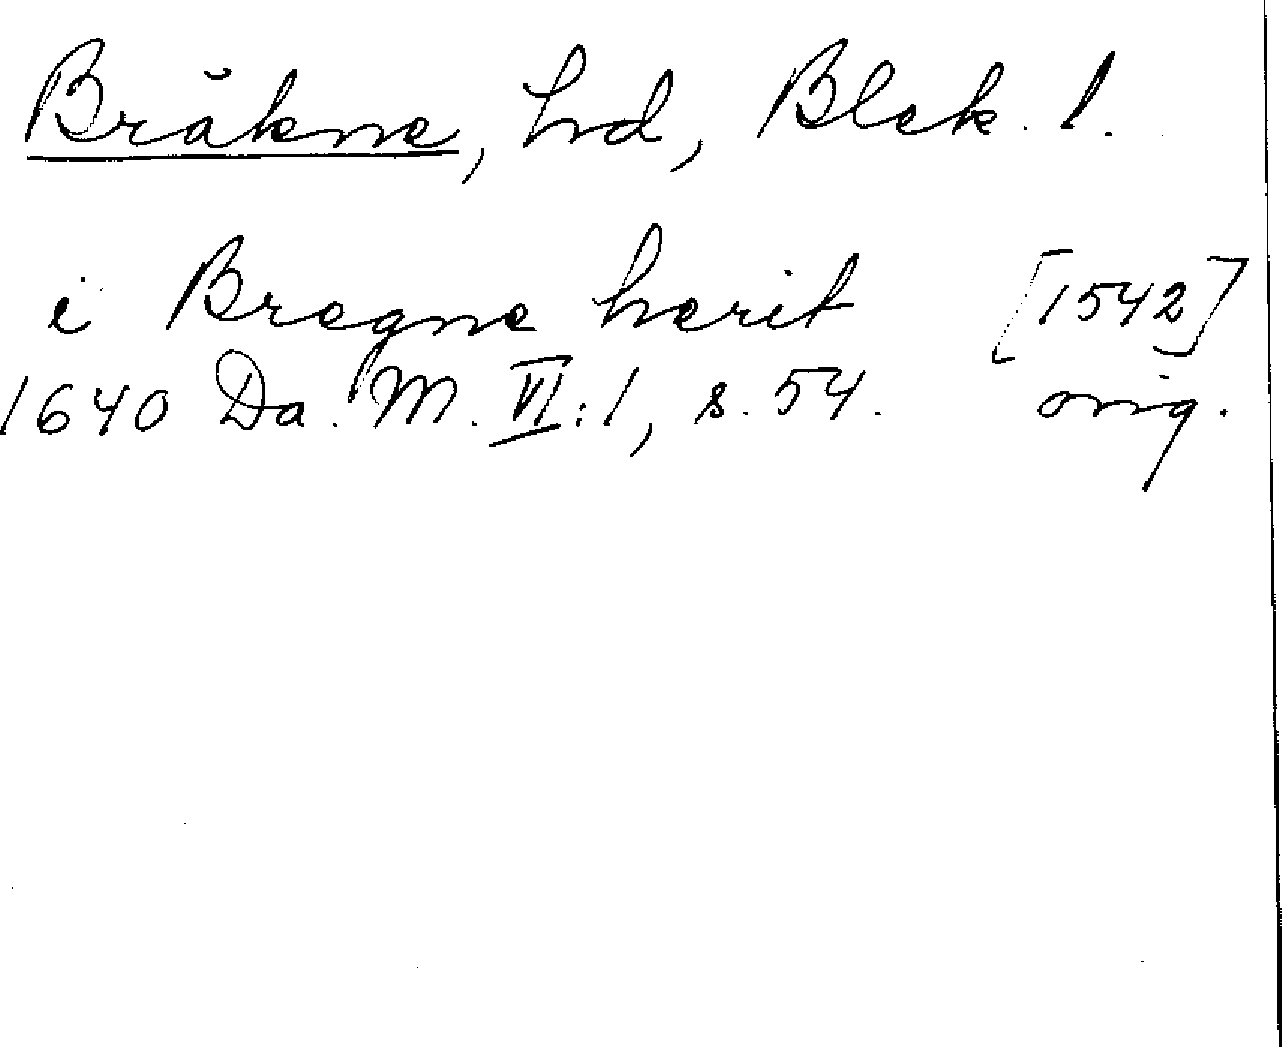 Bräkne, hd, Blek. l.
i Bregne herit [1542]
1640 Da. M. VI:1, s. 54. orig.